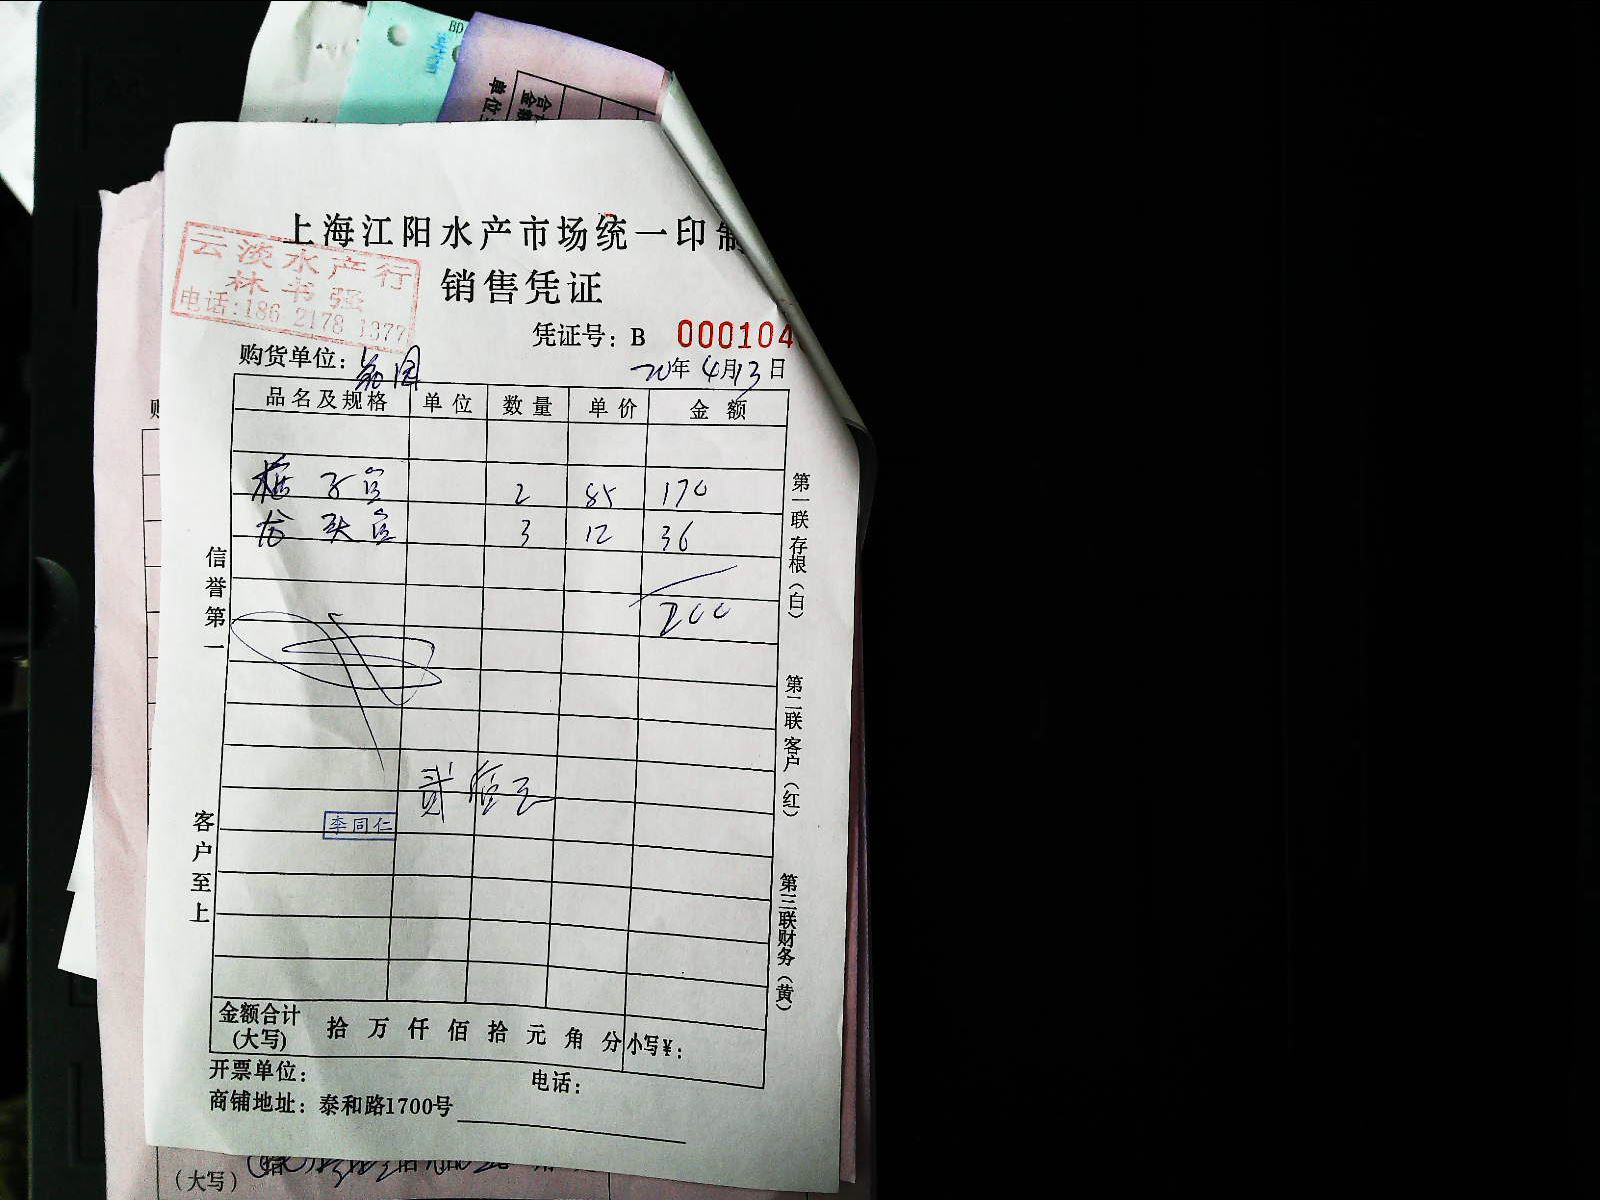 BD
单位
上海江阳水产市场统一印制
云淡水产行
林书强
电话:186 2178 1377
销售凭证
凭证号: B 000104
购货单位:
20年4月13日
品名及规格 单位 数量 单价 金额
2 85 170
3 12 36
200
贰佰元
李同仁
信誉第一
客户至上
第一联存根(白)
第二联客户(红)
第三联财务(黄)
金额合计(大写) 拾 万 仟 佰 拾 元 角 分 小写¥:
开票单位: 电话:
商铺地址: 泰和路1700号
(大写)